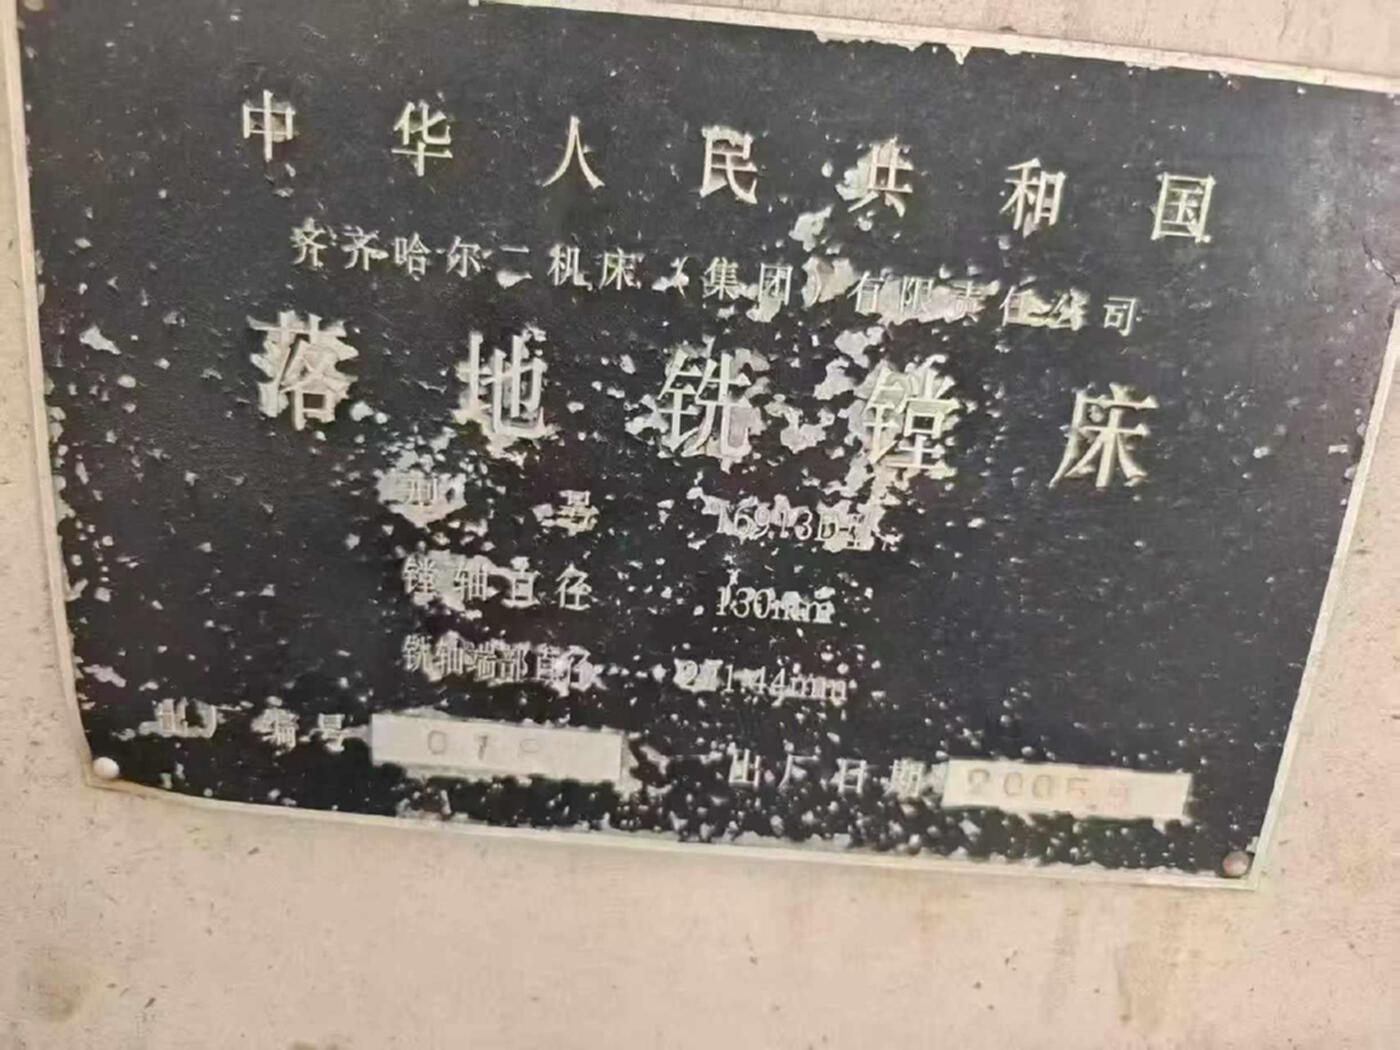 中华人民共和国
齐齐哈尔二机床（集团）有限责任公司
落地铣镗床
型号 T6913D型
镗轴直径 130mm
铣轴端部直径 221.44mm
出厂编号 018
出厂日期 2005.9